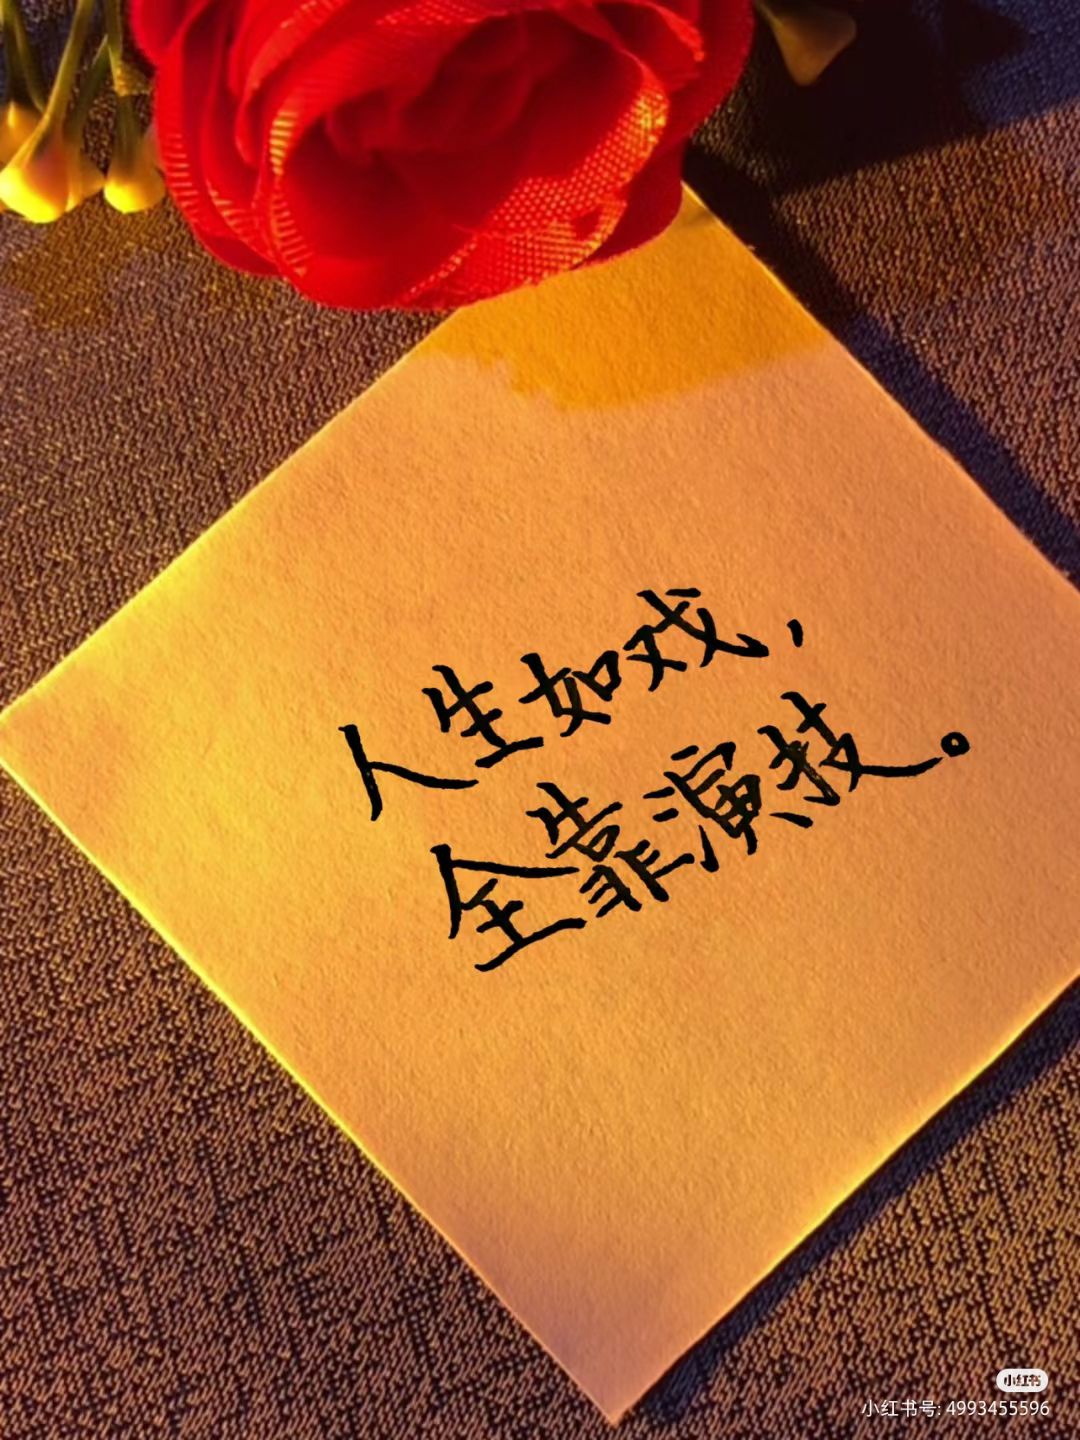 人生如戏，
全靠演技。
小红书
小红书号: 4993455596